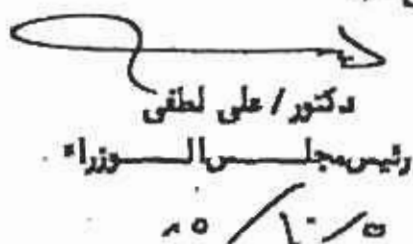 دكتور / على لطفى
رئيس مجلس الوزراء